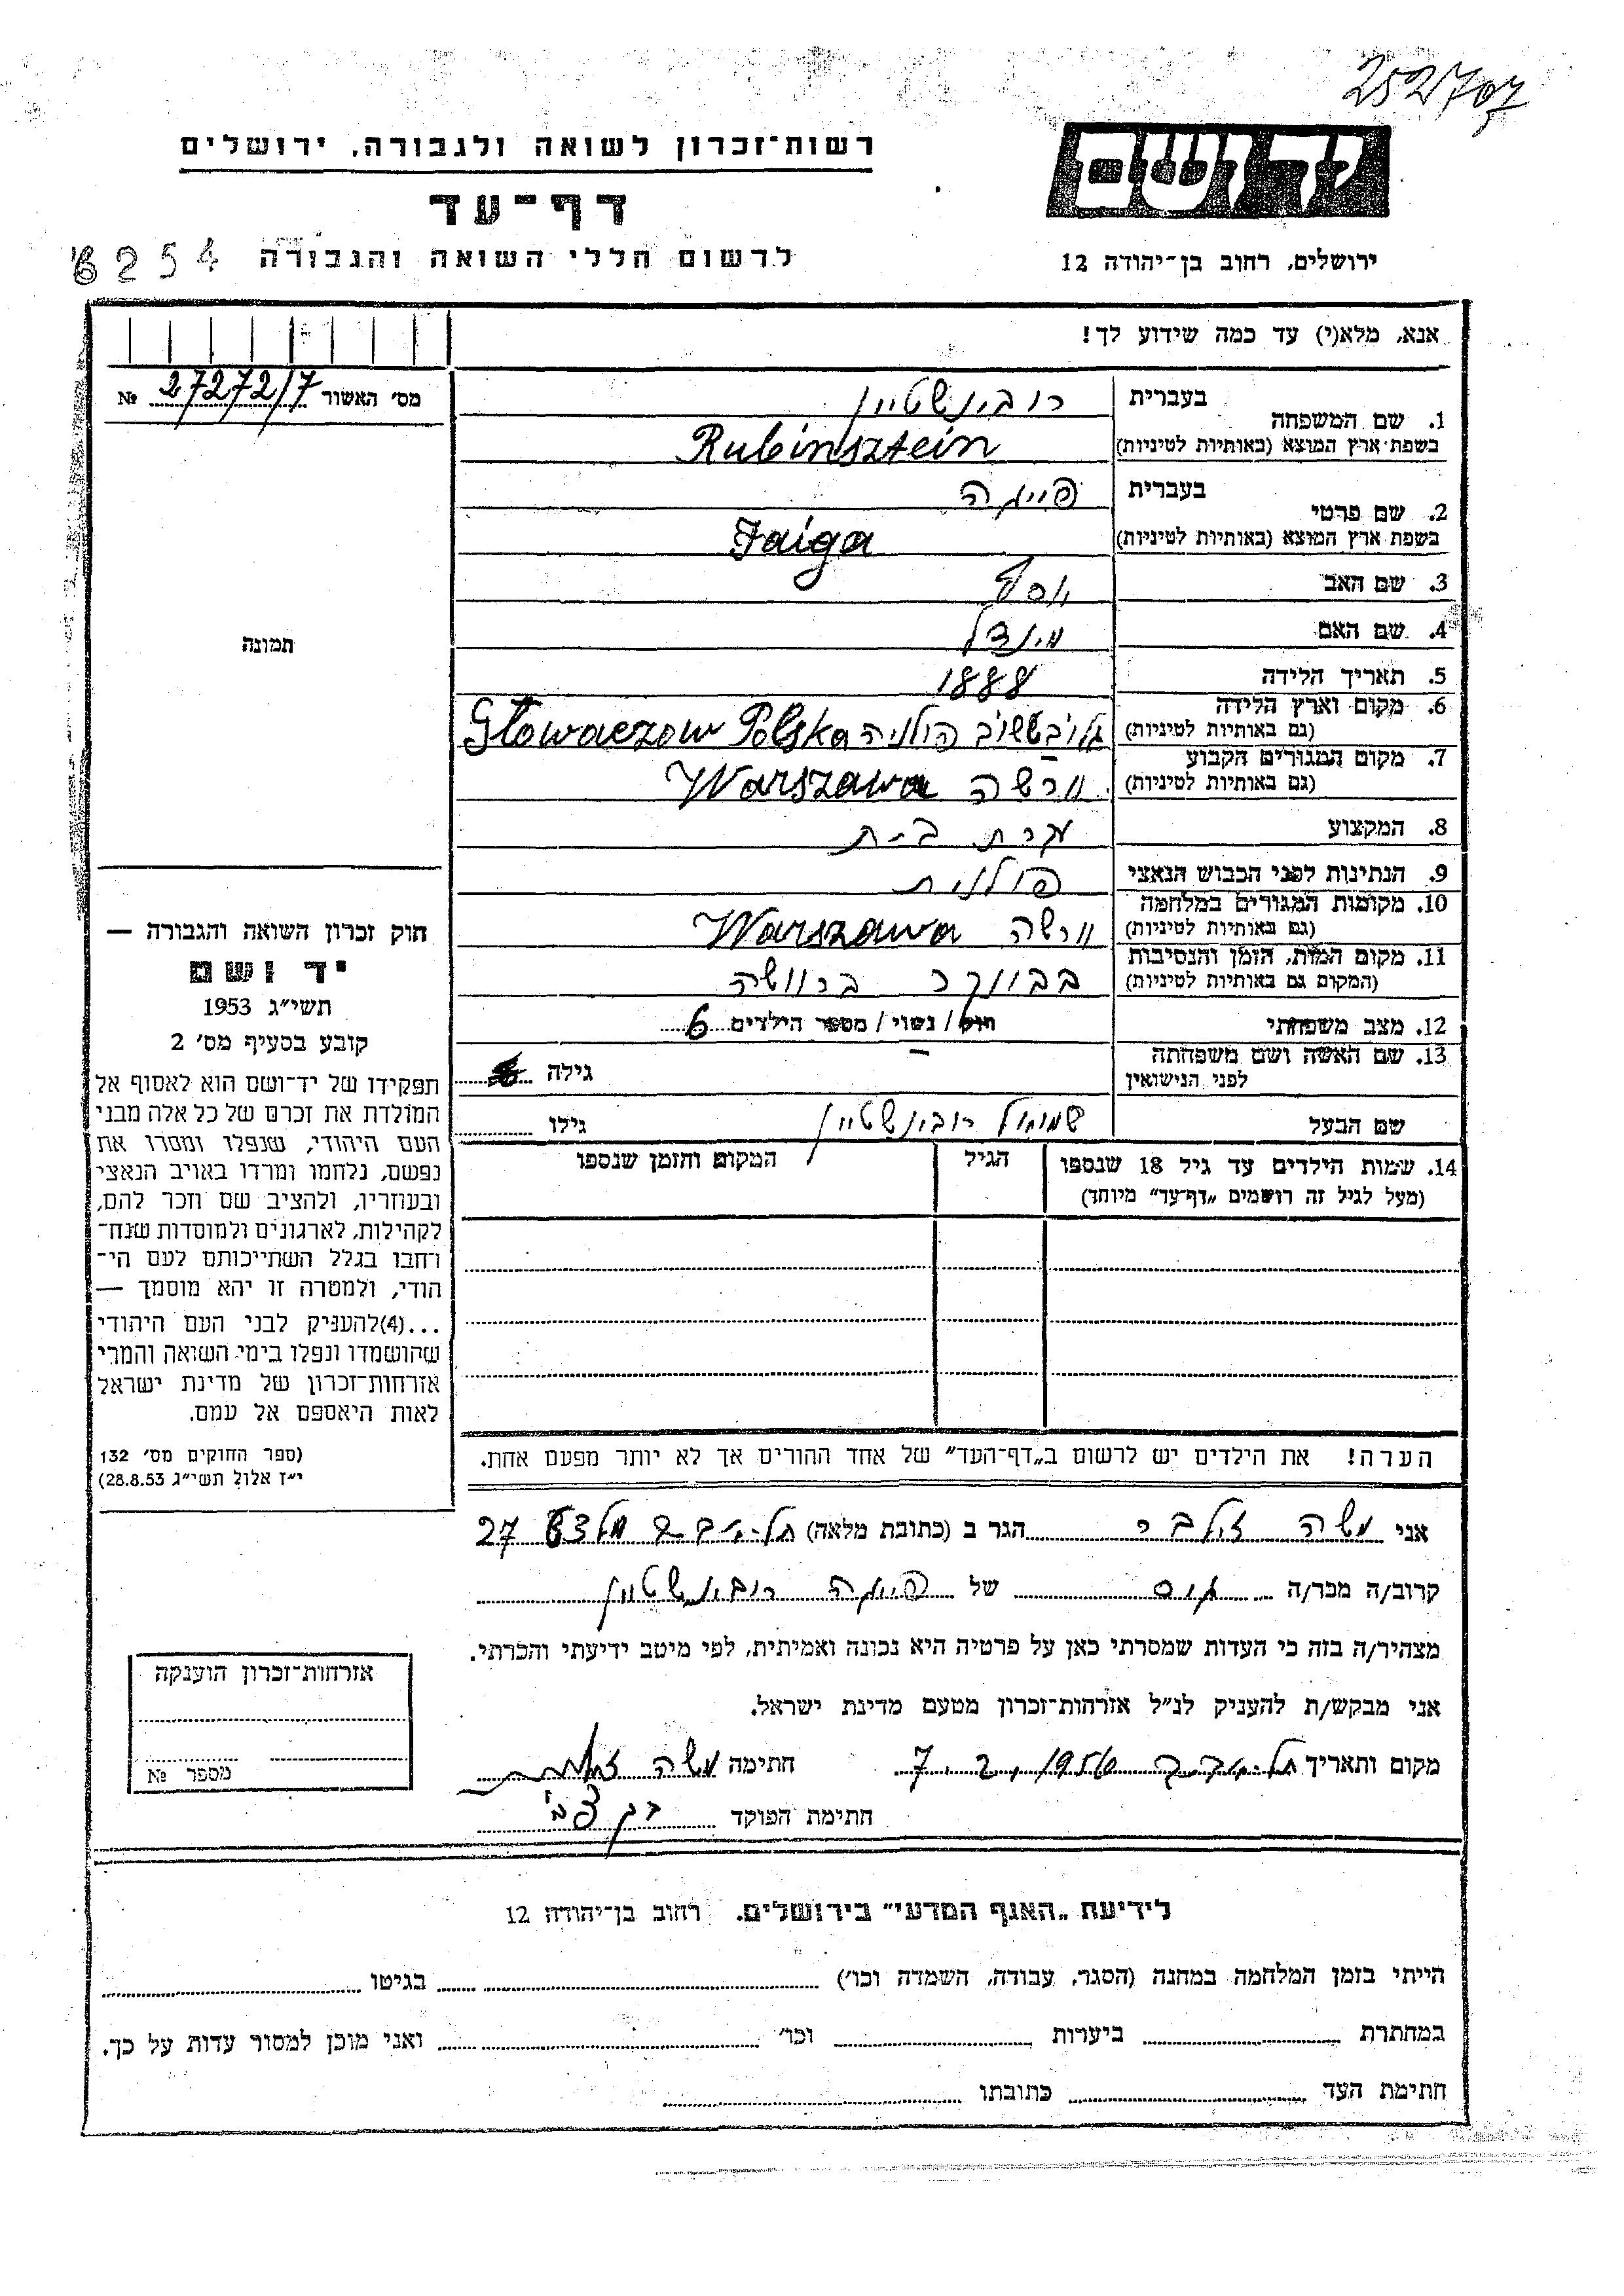 252707
יד ושם
רשות־זכרון לשואה ולגבורה, ירושלים
דף־עד
לרשום חללי השואה והגבורה 6254
ירושלים, רחוב בן־יהודה 12
אנא, מלא(י) עד כמה שידוע לך!
מס׳ האשור 27272/7 №
תמונה
1. שם המשפחה בעברית רובינשטיין
בשפת־ארץ המוצא (באותיות לטיניות) Rubinsztein
2. שם פרטי בעברית פייגה
בשפת ארץ המוצא (באותיות לטיניות) Faiga
3. שם האב יוסף
4. שם האם מינדל
5. תאריך הלידה 1888
6. מקום וארץ הלידה
(גם באותיות לטיניות) פולניה Głowaczow Polska
7. מקום המגורים הקבוע
(גם באותיות לטיניות) ורשה Warszawa
8. המקצוע עקרת בית
9. הנתינות לפני הכבוש הנאצי פולנית
10. מקומות המגורים במלחמה
(גם באותיות לטיניות) ורשה Warszawa
11. מקום המות, הזמן והנסיבות
(המקום גם באותיות לטיניות) בבונקר בוורשה
12. מצב משפחתי רווק / נשוי / מספר הילדים 6
13. שם האשה ושם משפחתה
לפני הנישואין גילה
שם הבעל שמואל רובינשטיין גילו
14. שמות הילדים עד גיל 18 שנספו הגיל המקום והזמן שנספו
(מעל לגיל זה רושמים „דף־עד״ מיוחד)
חוק זכרון השואה והגבורה —
יד ושם
תשי״ג 1953
קובע בסעיף מס׳ 2
תפקידו של יד־ושם הוא לאסוף אל
המולדת את זכרם של כל אלה מבני
העם היהודי, שנפלו ומסרו את
נפשם, נלחמו ומרדו באויב הנאצי
ובעוזריו, ולהציב שם וזכר להם,
לקהילות, לארגונים ולמוסדות שנח־
רחבו בגלל השתייכותם לעם הי־
הודי, ולמטרה זו יהא מוסמך —
...(4) להעניק לבני העם היהודי
שהושמדו ונפלו בימי השואה והמרי
אזרחות־זכרון של מדינת ישראל
לאות היאספם אל עמם.
(ספר החוקים מס׳ 132
י״ז אלול תשי״ג 28.8.53)
הערה! את הילדים יש לרשום ב„דף־העד״ של אחד ההורים אך לא יותר מפעם אחת.
אני משה הגר ב (כתובת מלאה) תל-אביב 27
קרוב/ה מכר/ה של פייגה רובינשטיין
מצהיר/ה בזה כי העדות שמסרתי כאן על פרטיה היא נכונה ואמיתית, לפי מיטב ידיעתי והכרתי.
אני מבקש/ת להעניק לנ״ל אזרחות־זכרון מטעם מדינת ישראל.
מקום ותאריך תל-אביב 7.2.1956 חתימה משה
חתימת הפוקד
אזרחות־זכרון הוענקה
מספר №
לידיעת „האגף המדעי״ בירושלים. רחוב בן־יהודה 12
הייתי בזמן המלחמה במחנה (הסגר, עבודה, השמדה וכו׳) בגיטו
במחתרת ביערות וכו׳ ואני מוכן למסור עדות על כך.
חתימת העד כתובתו